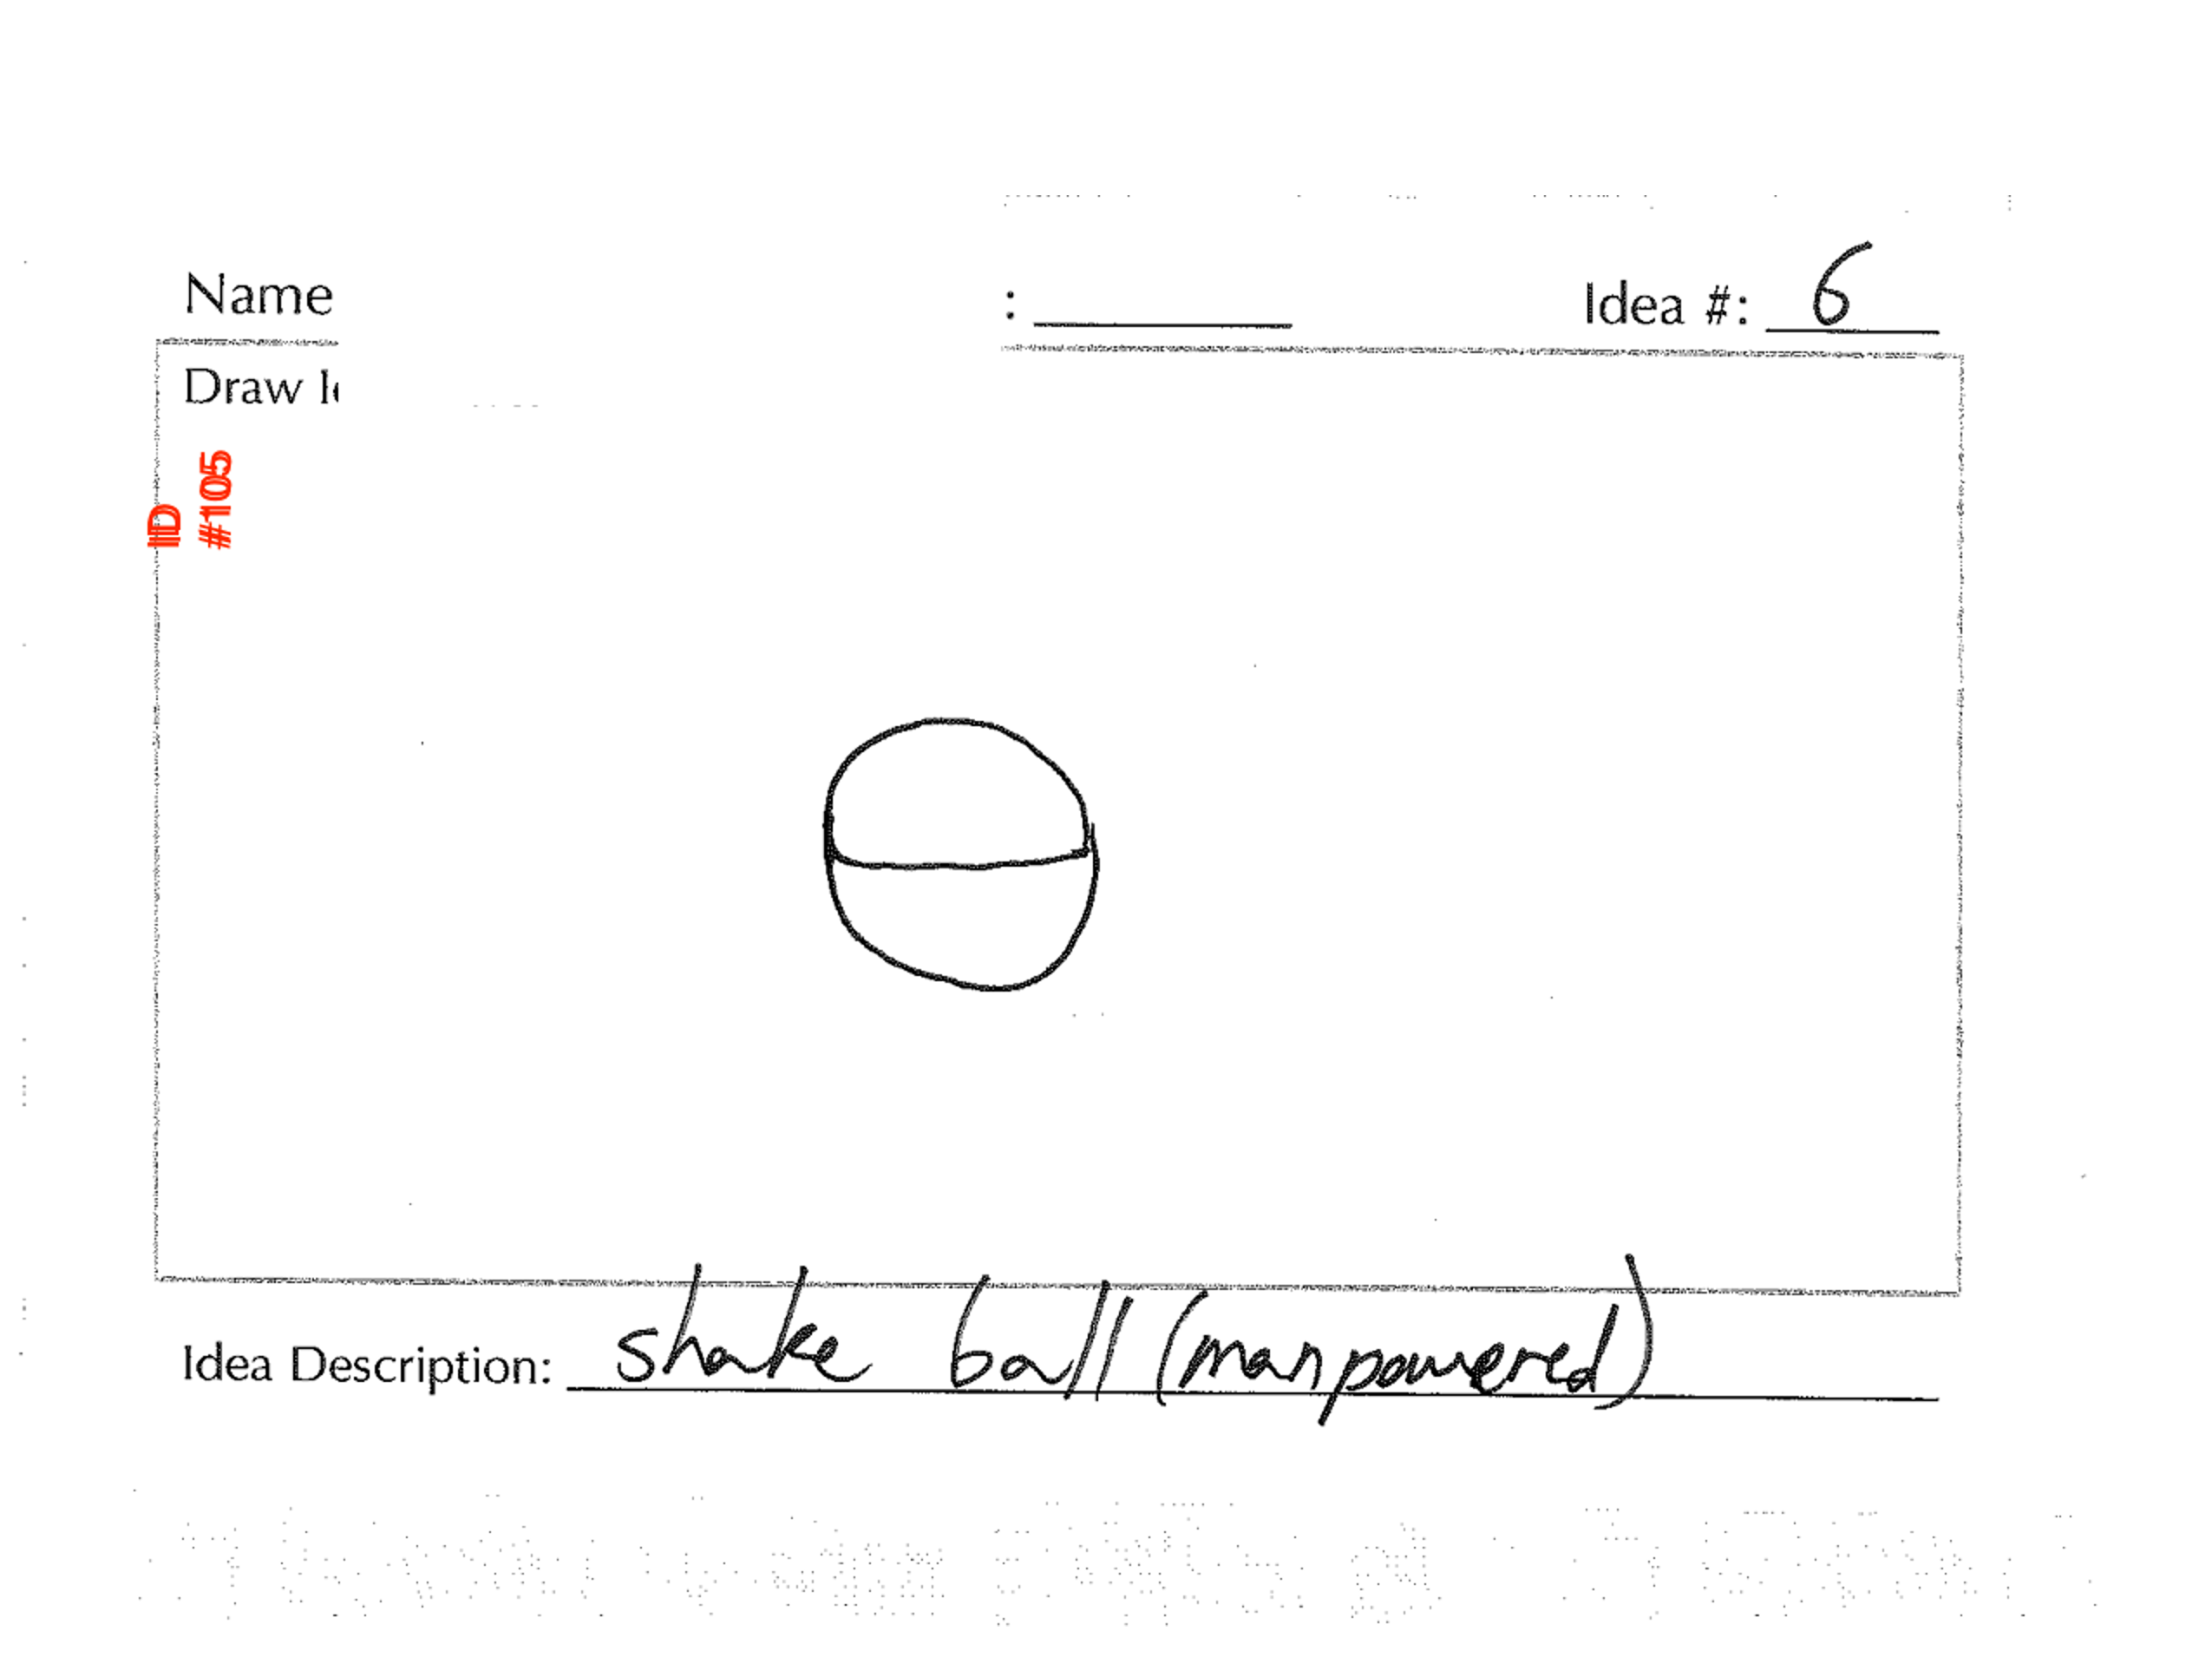 Name
: Idea #: 6
Draw
ID
#105
Idea Description: shake ball (manpowered)